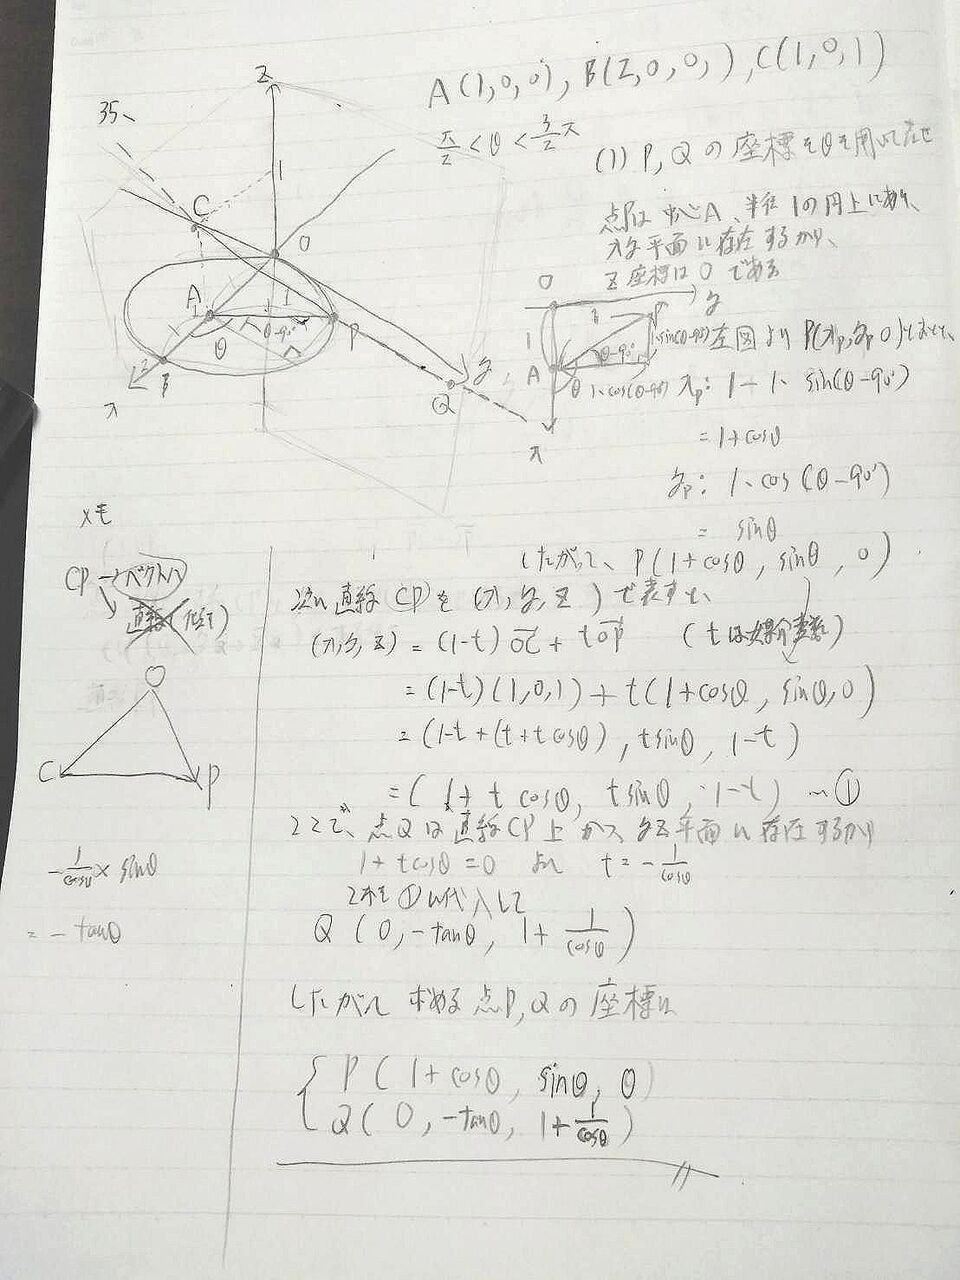 35、
A(1,0,0), B(2,0,0,), C(1,0,1)
π/2 < θ < 3/2 π
(1) P, Qの座標をθを用いて表せ
点Pは中心A、半径1の円上にあり、
xy平面に存在するから、
z座標は0である
z
1
C
O
A
1
1
P
θ-90°
θ
2
B
x
y
Q
O
y
1
P
1・sin(θ-90°)
θ-90°
A
θ
1・cos(θ-90°)
x
左図より P(xp, yp, 0)とおくと、
xp: 1 - 1・sin(θ-90°)
= 1+cosθ
yp: 1・cos(θ-90°)
= sinθ
したがって、P(1+cosθ, sinθ, 0)
メモ
CP → ベクトル
直線(傾き)
O
C
P
次に直線CPを(x, y, z)で表すと、
(x, y, z) = (1-t)OC + tOP (tは媒介変数)
= (1-t)(1,0,1) + t(1+cosθ, sinθ, 0)
= (1-t+(t+tcosθ), tsinθ, 1-t)
= (1+tcosθ, tsinθ, 1-t) …①
ここで、点Qは直線CP上かつ、yz平面に存在するから
1+tcosθ=0 より t=-1/cosθ
これを①に代入して
Q(0, -tanθ, 1+1/cosθ)
-1/cosθ × sinθ
= -tanθ
したがって 求める点P,Qの座標は
{ P(1+cosθ, sinθ, 0)
Q(0, -tanθ, 1+1/cosθ)